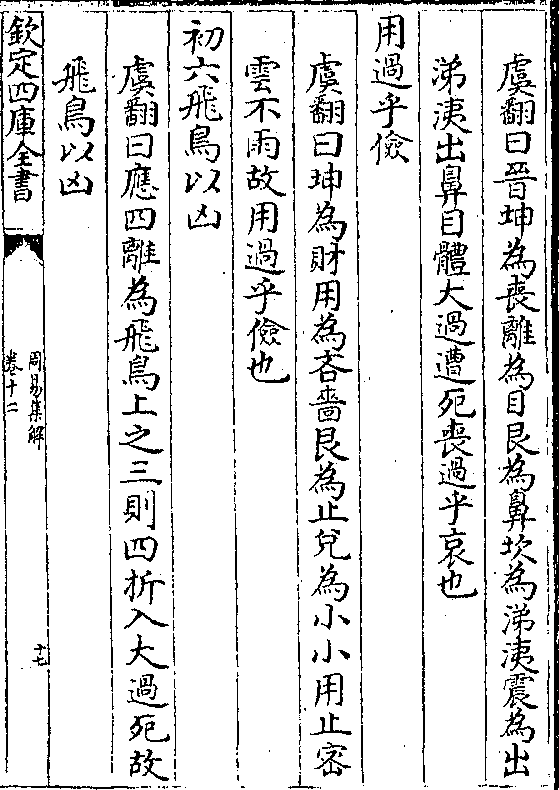 虞翻曰晉坤為喪離為目艮為鼻坎為涕洟震為出
涕洟出鼻目體大過遭死喪過乎哀也
用過乎儉
虞翻曰坤為財用為吝嗇艮為止兌為小小用止密
雲不雨故用過乎儉也
初六飛鳥以凶
虞翻曰應四離為飛鳥上之三則四折入大過死故
飛鳥以凶
欽定四庫全書
周易集解
卷十二
十七